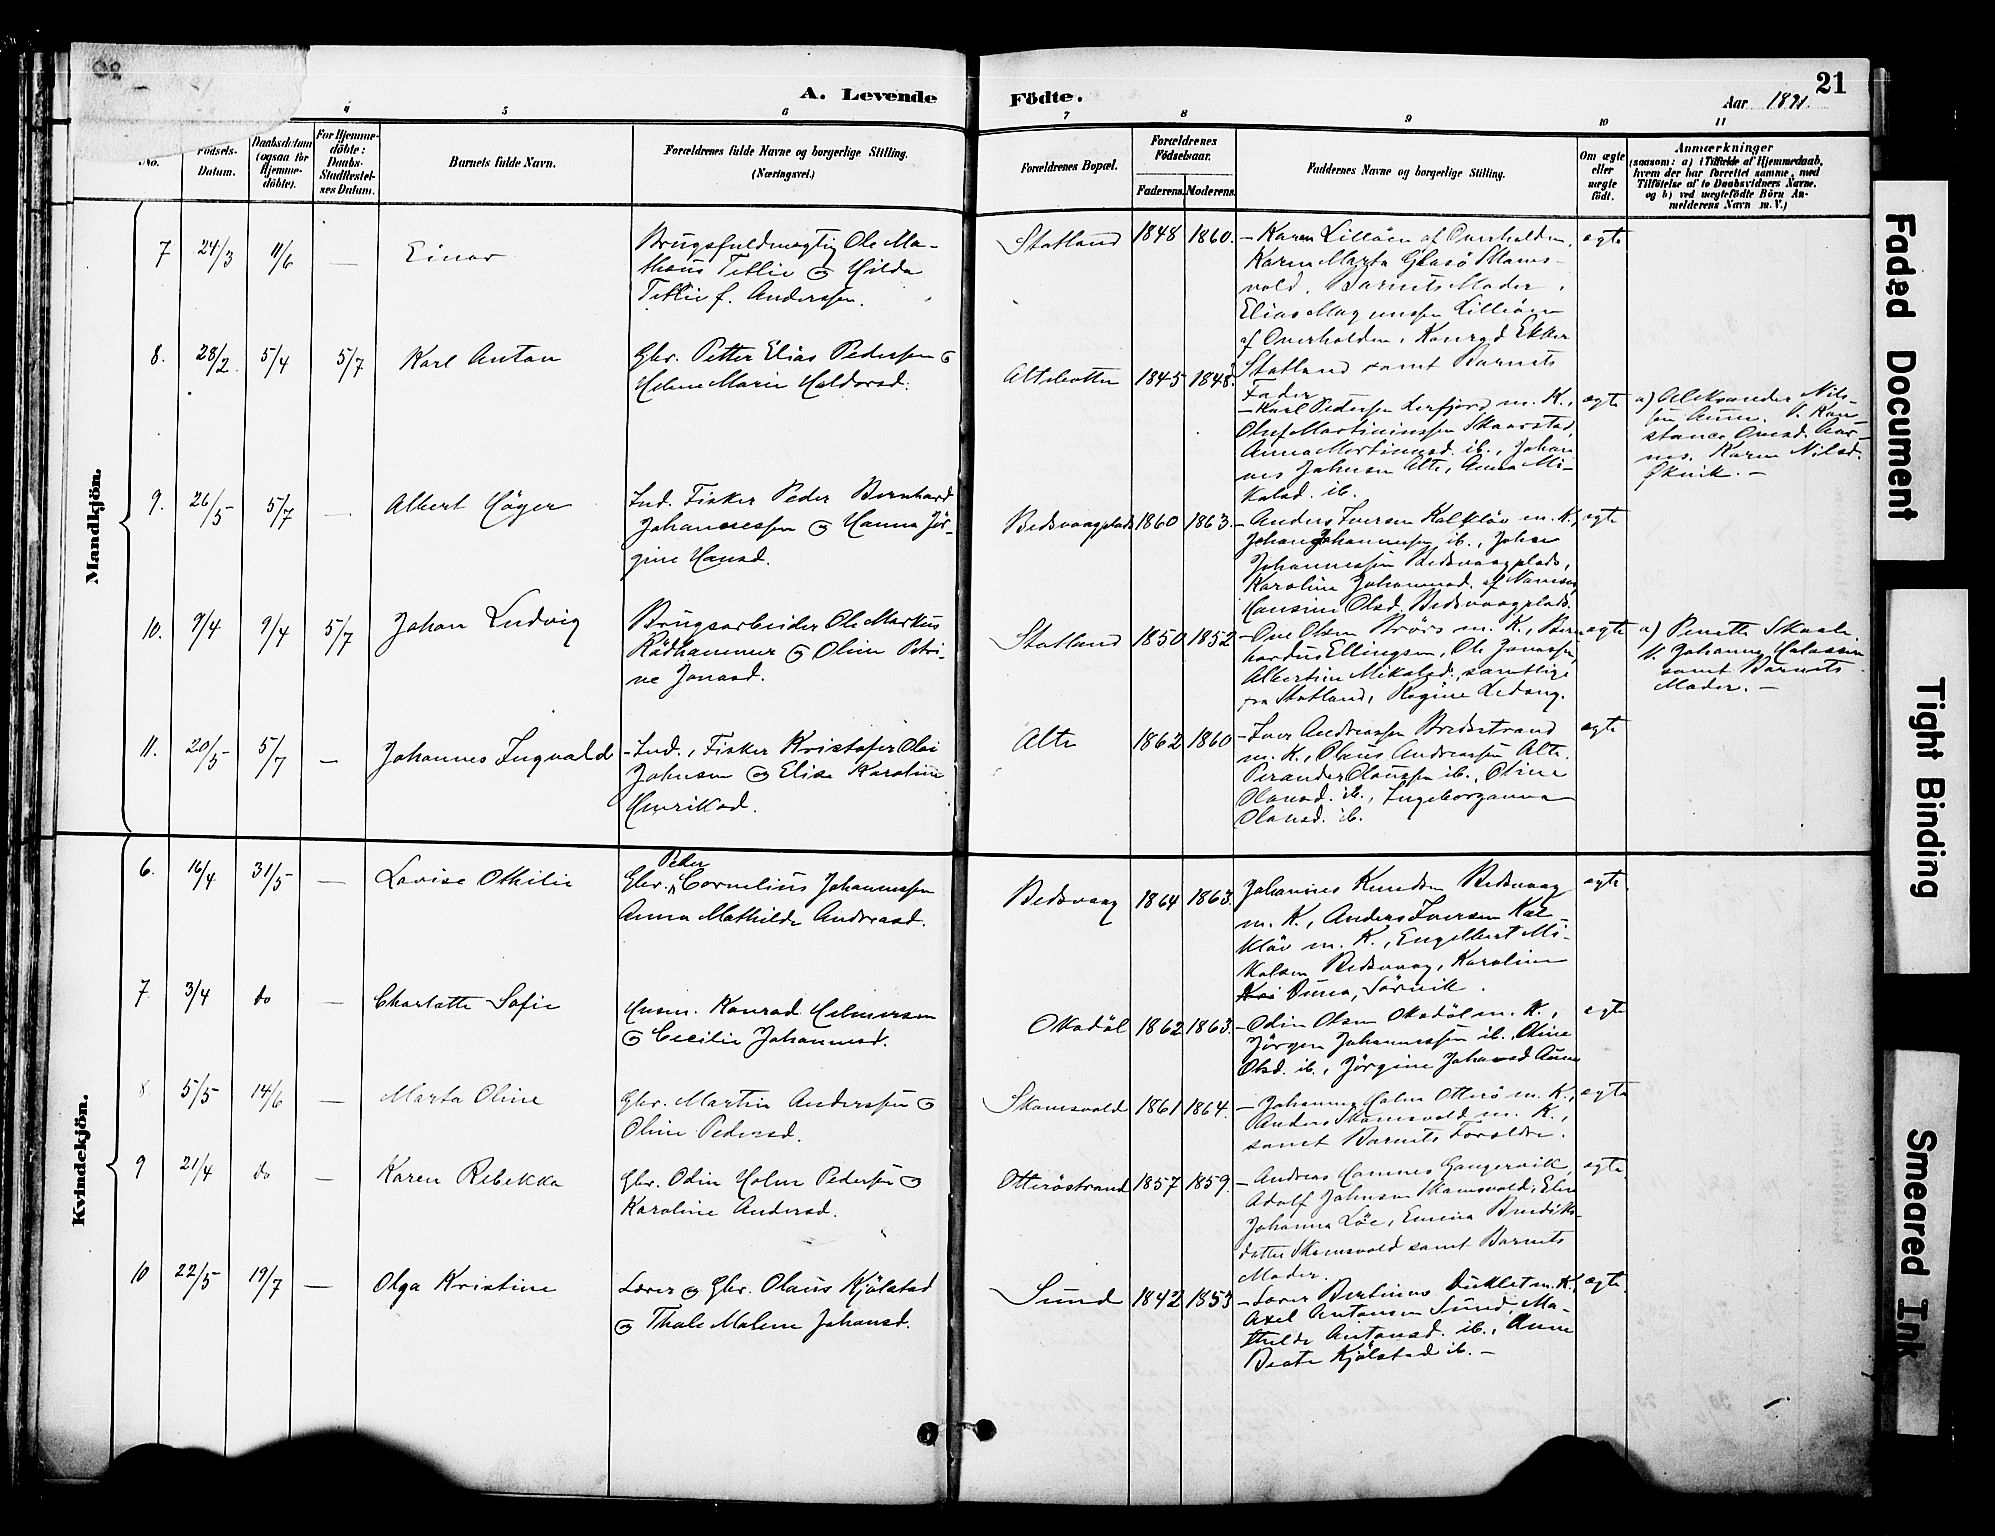 A. Levende Födte.
21
Aar 1891.
4
5
6
7
8
9
10
11
No.
Födsels-
Datum.
Daabsdatum
(ogsaa for
Hjemme-
döbte).
For Hjemme-
döbte:
Daabs-
Stadfæstel-
ses Datum.
Barnets fulde Navn.
Forældrenes fulde Navne og borgerlige Stilling.
(Næringsvei.)
Forældrenes Bopæl.
Forældrenes
Födselsaar.
Faderens.
Moderens.
Faddernes Navne og borgerlige Stilling.
Om ægte
eller
uægte
født.
Anmærkninger
(saasom: a) i Tilfælde af Hjemmedaab,
hvem der har forrettet samme, med
Tilföielse af to Daabsvidners Navne,
og b) ved uægtefödte Börn An-
melderens Navn m. V.)
Mandkjön.
7 24/3 11/6 — Einar
Brugsfuldmægtig Ole Ma-
thæus Tetlie og Hilda
Tetlie f. Anderssen.
Statland 1848 1860.
– Karen Lilløen af Overhalden,
Karen Marta Glasö Skams-
vold, Barnets Moder,
Elias Magnussen Lilløen
af Overhalden, Konrad Ekker
Statland samt Barnets
Fader
ægte
8. 28/2 5/4 5/7 Karl Anton
Gbr. Petter Elias Pedersen og
Helene Marie Haldorsd.
Altebotten 1845 1848.
– Karl Pedersen Lerfjord m. K.,
Oluf Martinussen Skaarstad,
Anna Martinusd. ib., Johan-
nes Johnsen Alte, Anna Mi-
kalsd. ib.
ægte
a) Aleksander Nils-
sen Aune. V. Kon-
stance Amsd. Aar-
nes. Karen Nilsd.
Økvik. –
9. 26/5 5/7 — Albert Höger
Ind. Fisker Peder Bernhard
Johannessen og Hanna Jör-
gine Hansd.
Bedsvaagplads 1860 1863.
– Anders Iversen Kalkløv m. K.,
Johan Johannessen ib., Johan
Johannessen Bedsvaagplads,
Karoline Johannesd. af Namsos,
Hansine Olsd. Bedsvaagplads.
ægte
10. 9/4 9/4 5/7 Johan Ludvig
Brugsarbeider Ole Markus
Rödhammer og Oline Petri-
ne Jonasd.
Statland 1850 1852
– Ove Olsen Brörs m. K., Bern
hardus Ellingsen, Ole Jonassen,
Albertine Mikalsd., samtlige
fra Statland, Regine Ledang.
ægte
a) Penette Skaale.
V. Johannes
samt Barnets
Moder. –
11. 20/5 5/7 — Johannes Ingvald
– Ind., Fisker Kristofer Olai
Johnsen og Elise Karoline
Henriksd.
Alte 1862 1860
– Iver Andreassen Bredestrand
m. K., Olaus Andreassen Alte.
Perander Olaussen ib., Oline
Olausd. ib., Ingeborganna
Olausd. ib.
ægte
Kvindekjön.
6. 16/4 31/5 — Lovise Othilie
Peder
Gbr. Cornelius Johannessen
Anna Mathilde Andreasd.
Bedsvaag 1864 1863.
Johannes Knudsen Bedsvaag
m. K., Anders Iversen Kal-
kløv m. K., Engelbert Mi-
kalsen Bedsvaag, Karoline
Duna, Sörvik.
ægte
7. 3/4 do — Charlotte Sofie
Husm. Konrad Helmersen
og Cecilie Johannesd.
Oksdöl 1862 1863.
– Odin Olsen Oksdöl m. K.,
Jörgen Johannessen ib. Oline
Olsd. ib., Jörgine Johansd Aune
ægte
8 5/5 14/6 — Marta Oline
Gbr. Martin Anderssen og
Oline Pedersd.
Skamsvold 1861 1864.
– Johannes Holm Otterö m. K.,
Anders Skamsvold m. K.,
samt Barnets Forældre.
ægte
9 21/4 do — Karen Rebekka
Gbr. Odin Holm Pedersen og
Karoline Andersd.
Otteröstrand 1857 1859.
– Andreas Hannes Gangervik,
Adolf Johnsen Skamsvold, Elen
Johanna Löe, Emma Benedikts-
datter Skamsvold samt Barnets
Moder.
ægte
10 22/5 19/7 — Olga Kristine
Lærer og Gbr. Olaus Kjölstad
og Thale Malene Johansd.
Sund 1842 1853
– Lærer Bertinus Duklæt m. K.,
Axel Antonsen Sund, Ma-
thilde Antonsd. ib., Anne
Beate Kjölstad ib. –
ægte.
Faded Document
Tight Binding
Smeared Ink